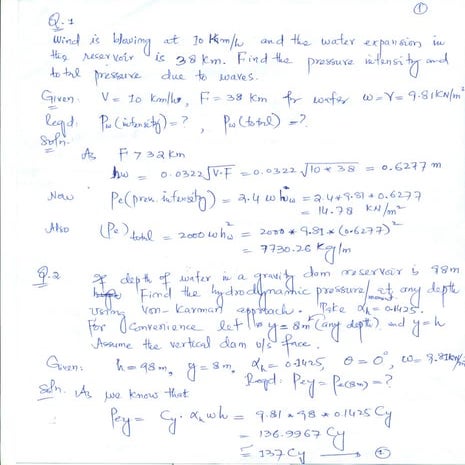 ①
Q.1
Wind is blowing at 10 Km/h and the water expansion in
the reservoir is 38 km. Find the pressure intensity and
total pressure due to waves.
Given: V = 10 km/hr, F = 38 Km for water w=γ= 9.81KN/m²
Reqd: Pw (intensity) = ? , Pw (total) = ?
Soln.
As F > 32 Km
hw = 0.0322 √V.F = 0.0322 √10 * 38 = 0.6277 m
Now Pe (pres. intensity) = 2.4 w hw = 2.4 * 9.81 * 0.6277
= 14.78 KN/m²
Also (Pe) total = 2000 w hw² = 2000 * 9.81 * (0.6277)²
= 7730.26 Kg/m
Q.2 If depth of water in a gravity dam reservoir is 98m
Find the hydrodynamic pressure/moment at any depth
using Von-Karman approach. Take αh = 0.1425.
For convenience let y = 8m (any depth) and y=h
Assume the vertical dam u/s face.
Given: h = 98m, y = 8m, αh = 0.1425, θ = 0°, w = 9.81KN/m³
Reqd: Pey = Pe(8m) = ?
Soln. As we know that
Pey = Cy. αh wh = 9.81 * 98 * 0.1425 Cy
= 136.9967 Cy
= 137 Cy → ①